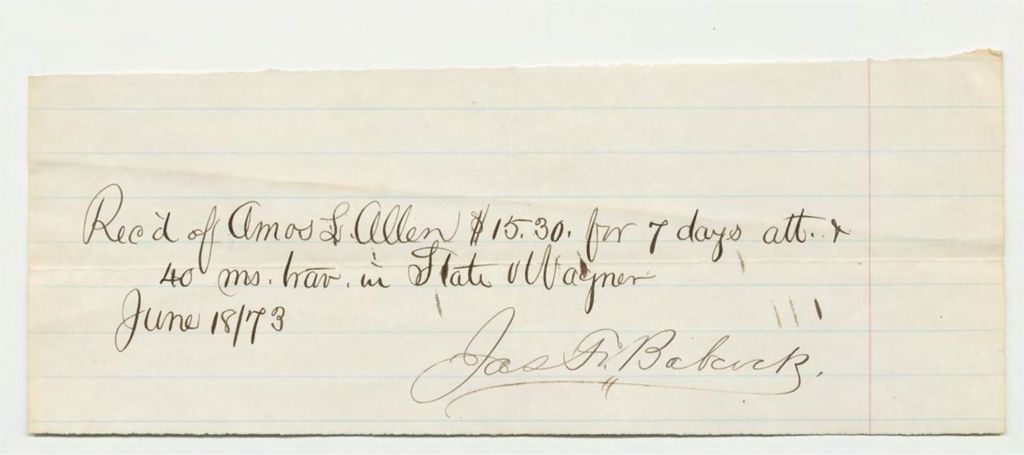 Rec'd off Amos L. Allen $15.30. for 7 days att. &
40 ms. trav. in State v Wagner
June 18/73
Jas F. Babcock.